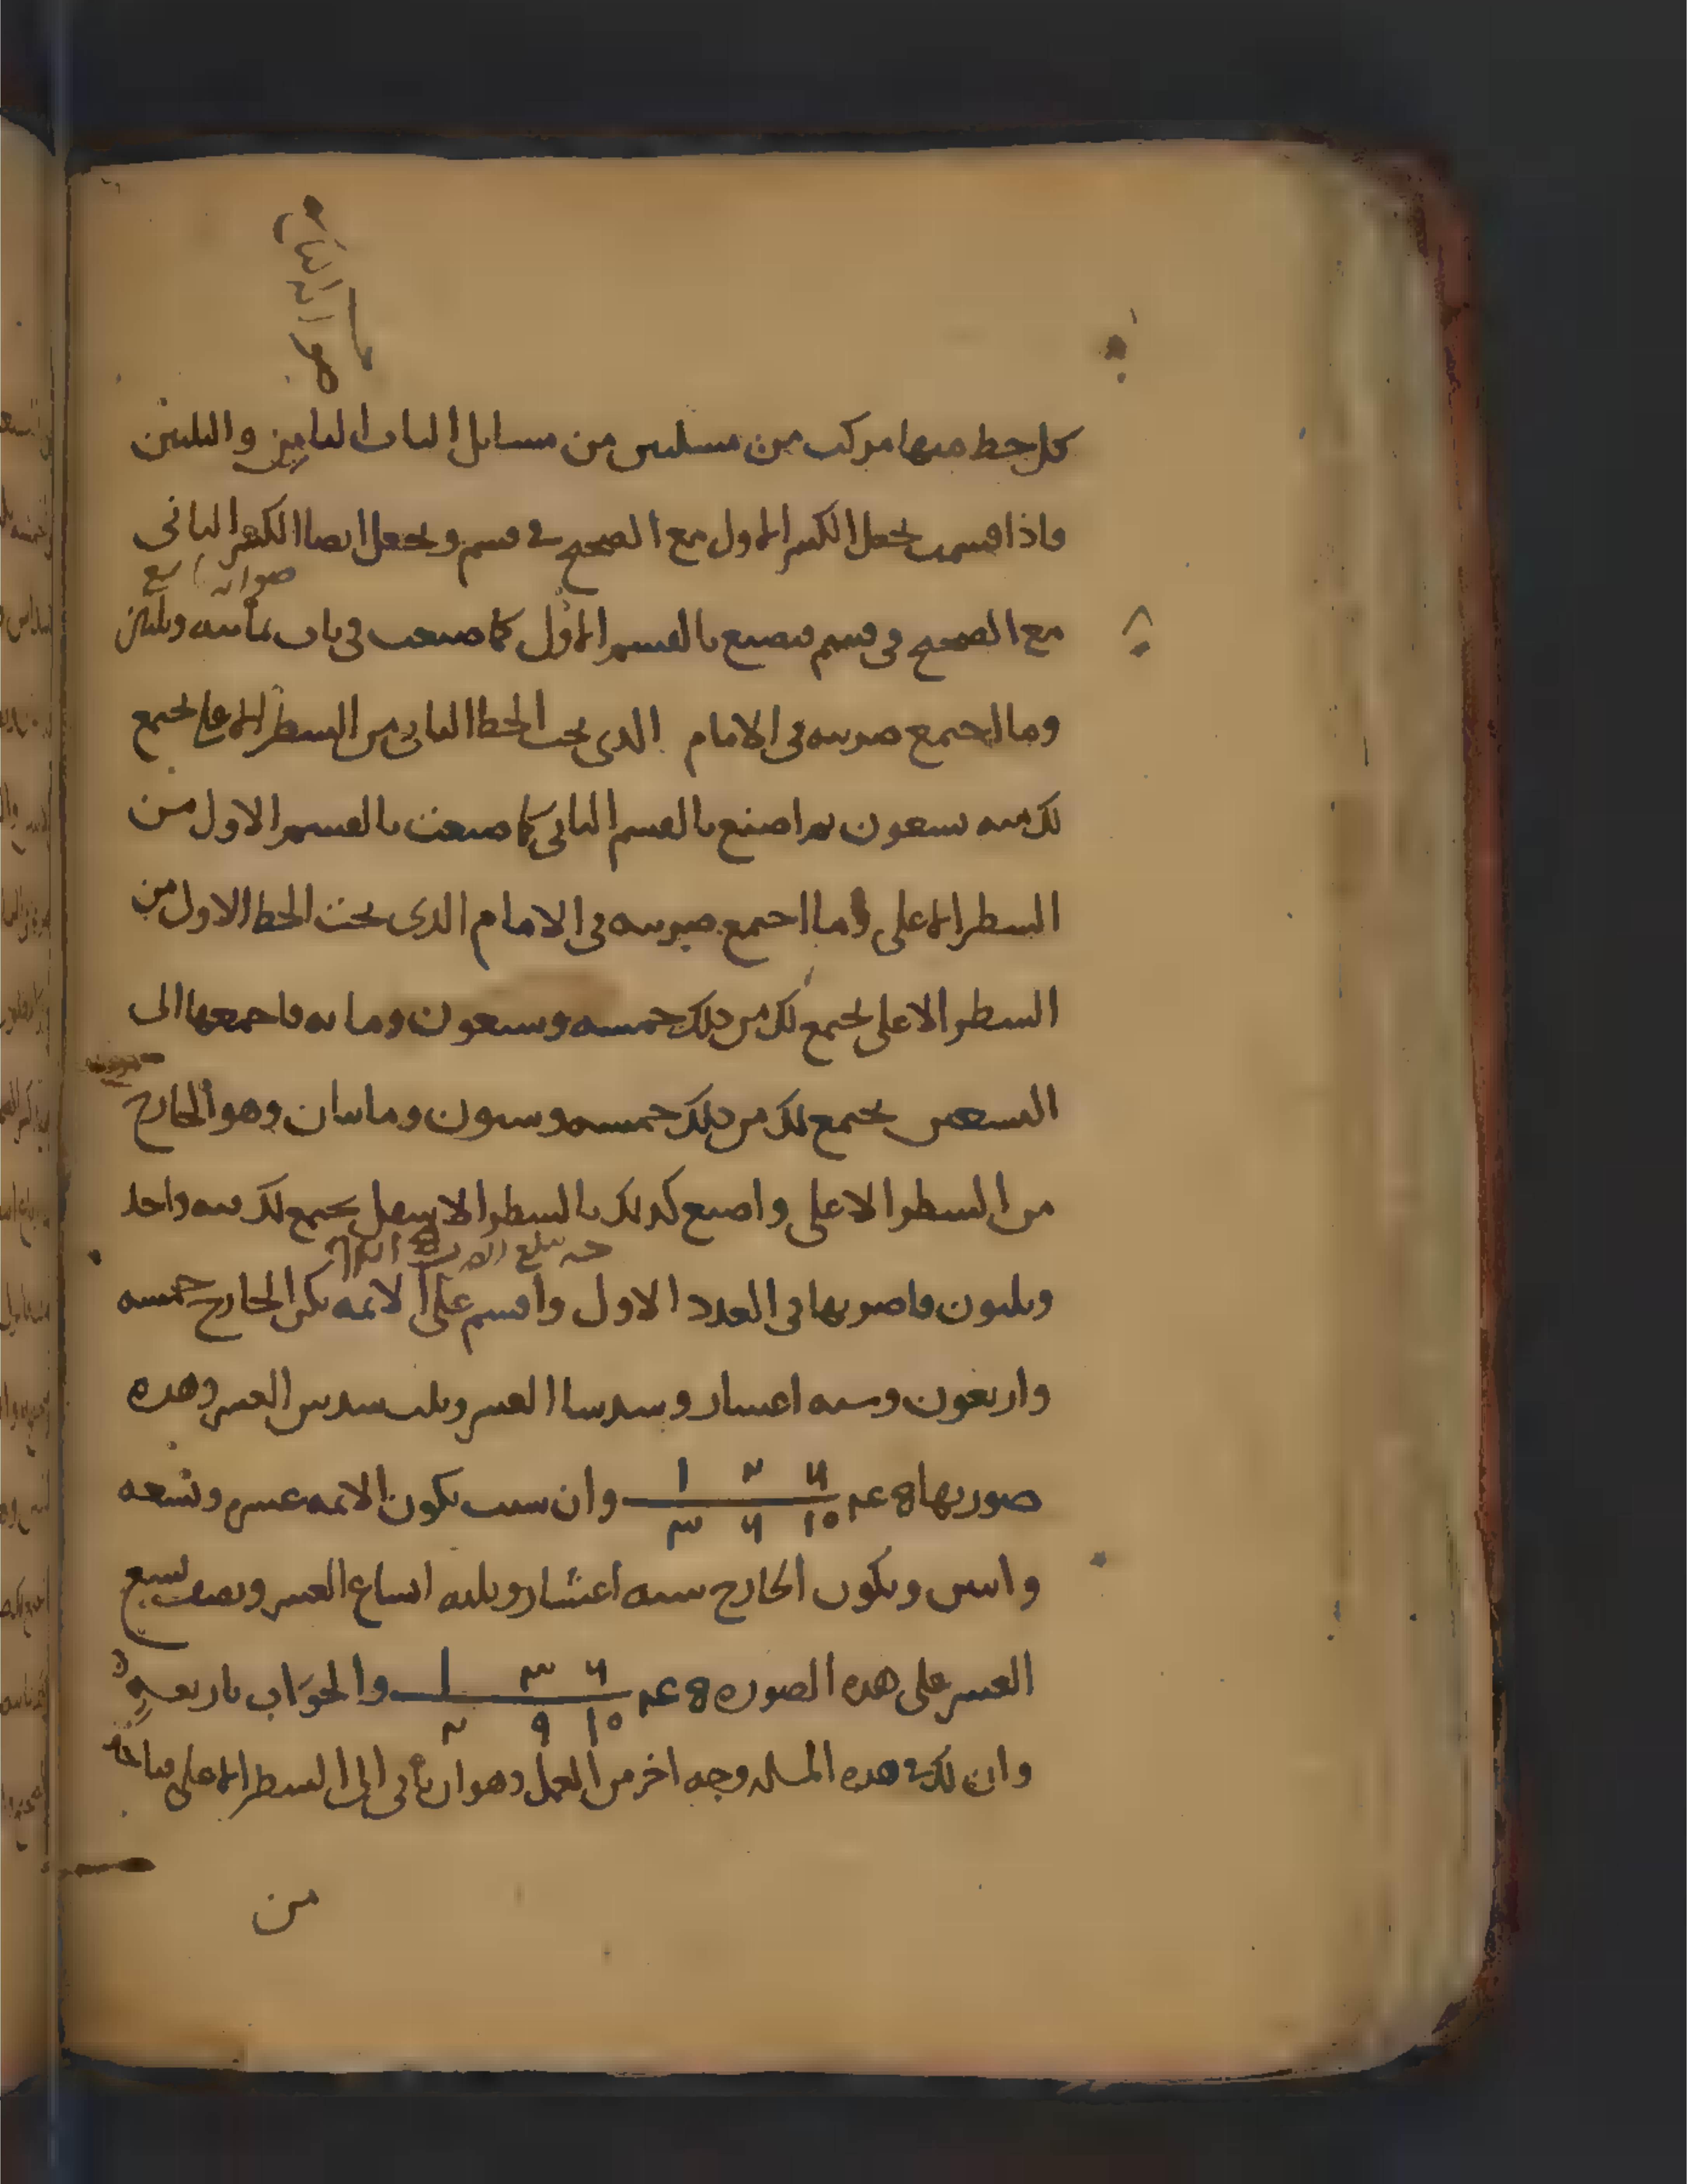 كل خط منها مركب من مسلتين من مسايل الباب الثامن والثلثين
فاذا قسمت تجعل الكسر الاول مع الصحيح في قسم وتجعل ايضا الكسر الثاني
صوابه
مع الصحيح في قسم فتصنع بالقسم الاول كما صنعت في باب ثمانيه وثلثين
وما اجتمع ضربته في الامام الذي تحت الخط الثاني من السطر الاعلى يجتمع
لك منه تسعون ثم اصنع بالقسم الثاني كما صنعت بالقسم الاول من
السطر الاعلى وما اجتمع ضربته في الامام الذي تحت الخط الاول من
السطر الاعلى يجتمع لك من ذلك خمسه وسبعون ومايه فاجمعها الى
التسعين يجتمع لك من ذلك خمسه وستون وماتان وهو الخارج
من السطر الاعلى واصنع كذلك بالسطر الاسفل يجتمع لك منه واحد
وثلثون فاضربها في العدد الاول واقسم على الايمه يكن الخارج خمسه
واربعون وسته اعشار وسدسا العشر وثلث سدس العشر وهذه
صورتها
وان شيت تكون الايمه عشره وتسعه
واثنين ويكون الخارج سته اعشار وثلثه اتساع العشر ونصف تسع
العشر على هذه الصوره
والجواب
وان لك في هذه المسله وجه اخر من العمل وهو ان تاتي الى السطر الاعلى
من